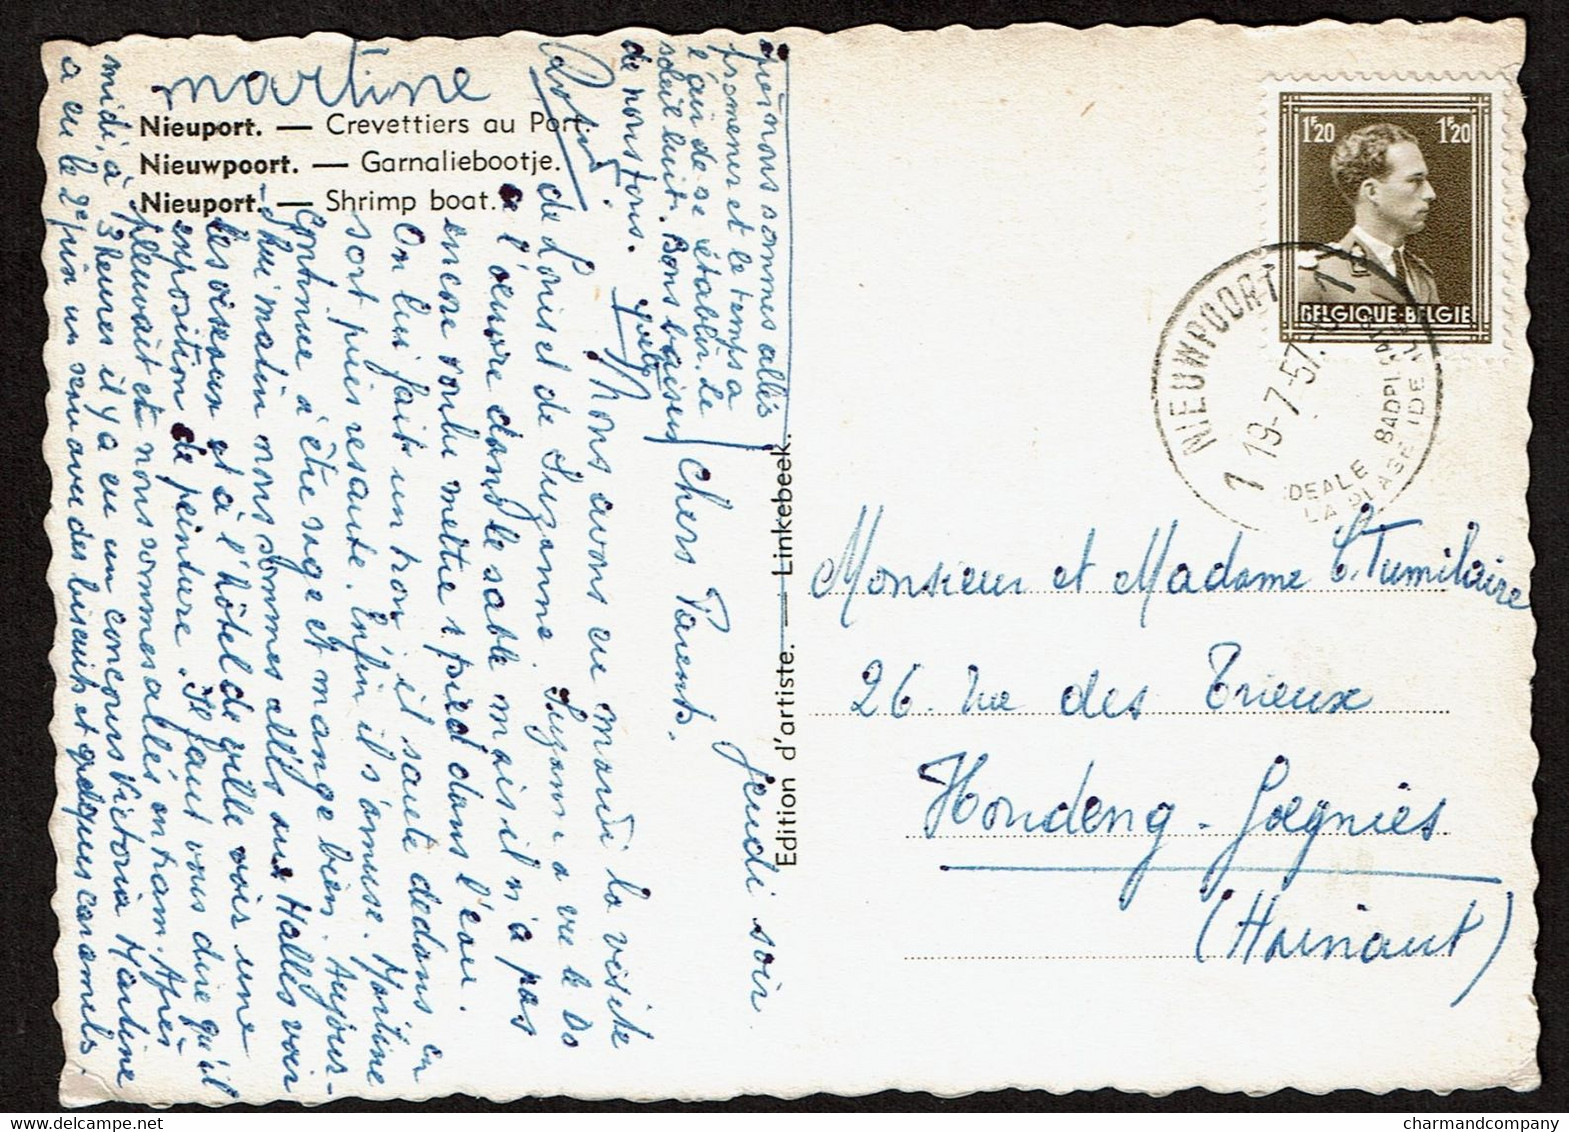 martine
Nieuport. — Crevettiers au Port.
Nieuwpoort. — Garnaliebootje.
Nieuport. — Shrimp boat.
Edition d'artiste. — Linkebeek.
Jeudi soir
Chers Parents.
Nous avons eu mardi la visite
de Louis et de Suzanne. Suzanne a vu le Do
à l'œuvre dans le sable mais il n'a pas
encore voulu mettre 1 pied dans l'eau.
On lui fait un trou, il saute dedans en
sort puis resaute. Enfin il s'amuse. Martine
continue à être sage et mange bien. Aujour-
d'hui matin nous sommes allés aux Halles voir
les oiseaux et à l'hôtel de ville voir une
exposition de peinture. Il faut vous dire qu'il
pleuvait et nous sommes allés en tram. Après
midi, à 3 heures il y a eu un concours Victoria Martine
a eu le 2e prix un seau avec des biscuits et quelques caramels.
après nous sommes allés
promener et le temps a
l'air de se rétablir. Le
soleil luit. Bons baisers
de nous tous.
Monsieur et Madame
26. rue des Trieux
Houdeng-Goegnies
(Hainaut)
1F20 1F20
BELGIQUE-BELGIE
NIEUWPOORT 1
19-7-57
IDEALE BADPLAATS
LA PLAGE IDEALE
charmandcompany